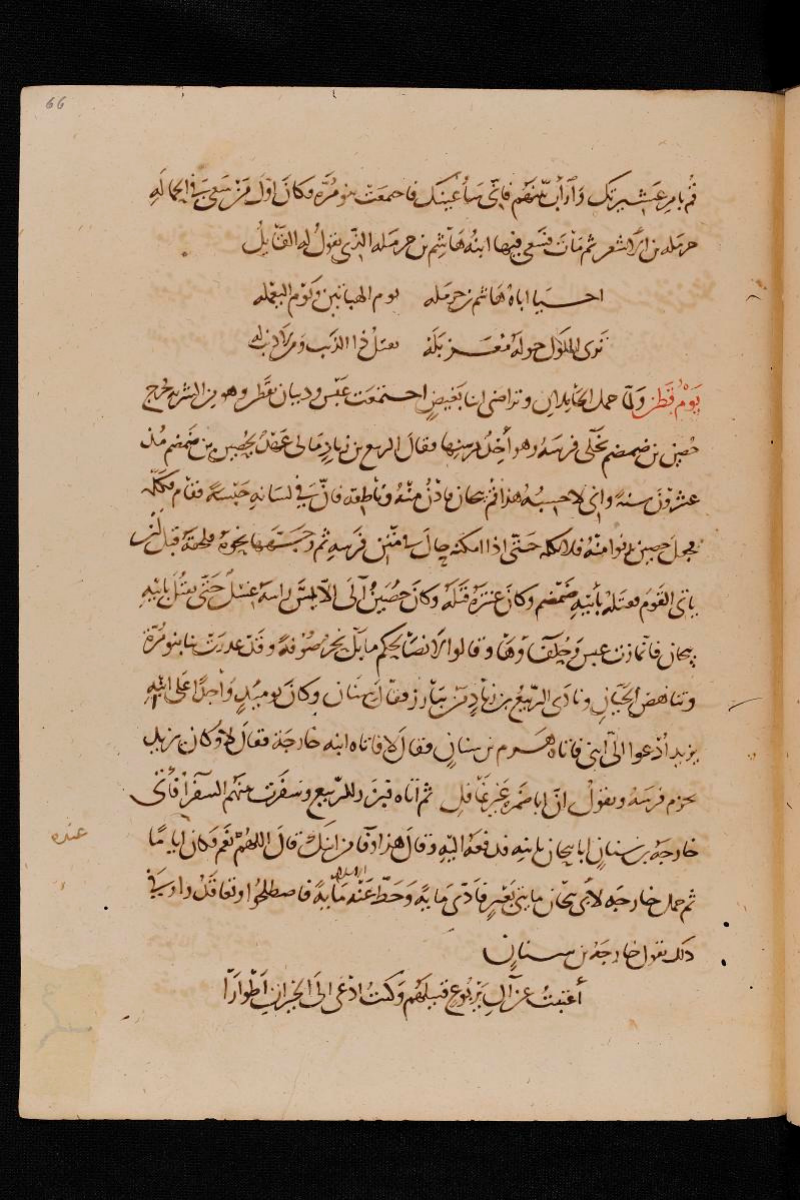 66
قم بامر عشيرتك وارأب بينهم فاني سأعينك فاجمعت بنو مرة وكان اول من سعى في الحمالة
حرملة بن الاشعر ثم مات فسعى فيها ابنه هاشم بن حرملة الذي يقول له القائل
احيا اباه هاشم بن حرمله يوم الهباتين ويوم اليعمله
ترى الملوك حوله مغربله يقتل ذا الذنب ومن لا ذنب له
يوم قطن ولما حمل الحاملان وتراضى ابنا بغيض اجتمعت عبس وذبيان بقطن وهو من الشربة فخرج
حصين بن ضمضم يخلى فرسه وهو آخذ بمرسنها فقال الربيع بن زياد مالى عهد بحصين بن ضمضم مذ
عشرون سنة وانى لاحسبه هذا قم يا بيحان فادن منه وناطقه فان في لسانه حبسة فقام فكلمه
فجعل حصين يدنوا منه فلا يكلمه حتى اذا امكنه جال في متن فرسه ثم وجهها نحوه فلحقه قبل ان
ياتى القوم فقتله بأبيه ضمضم وكان عنترة قتله وكان حصين آلى الا يمس راسه غسل حتى يقتل بابيه
بيحان فانحازت عبس وحلفاؤها وقالوا لا نصالحكم ما بل بحر صوفة وقد غدرت بنا بنو مرة
وتناهض الحيان ونادى الربيع بن زياد من يبارز فقال سنان وكان يومئذ واجدا على ابنه
يزيد ادعوا الى ابنى فاتاه هرم بن سنان فقال لا فاتاه ابنه خارجة فقال لا وكان يزيد
يحزم فرسه ويقول ان ابا ضمرة غير غافل ثم اتاه فبرز للربيع وسفرت بينهم السفراء فأتى
خارجة بن سنان ابا بيحان بابنه فدفعه اليه وقال هذا وفاء من ابنك قال اللهم نعم فكان اياما
عنده
ثم حمل خارجة لابى بيحان مايتى بعير فادى ماية وحط عنه ماية فاصطلحوا وتعاقدوا وفي
ذلك يقول خارجة بن سنان
أعتبت عن آل يربوع قتيلهم وكنت ادعى الى الخيرات اطوارا